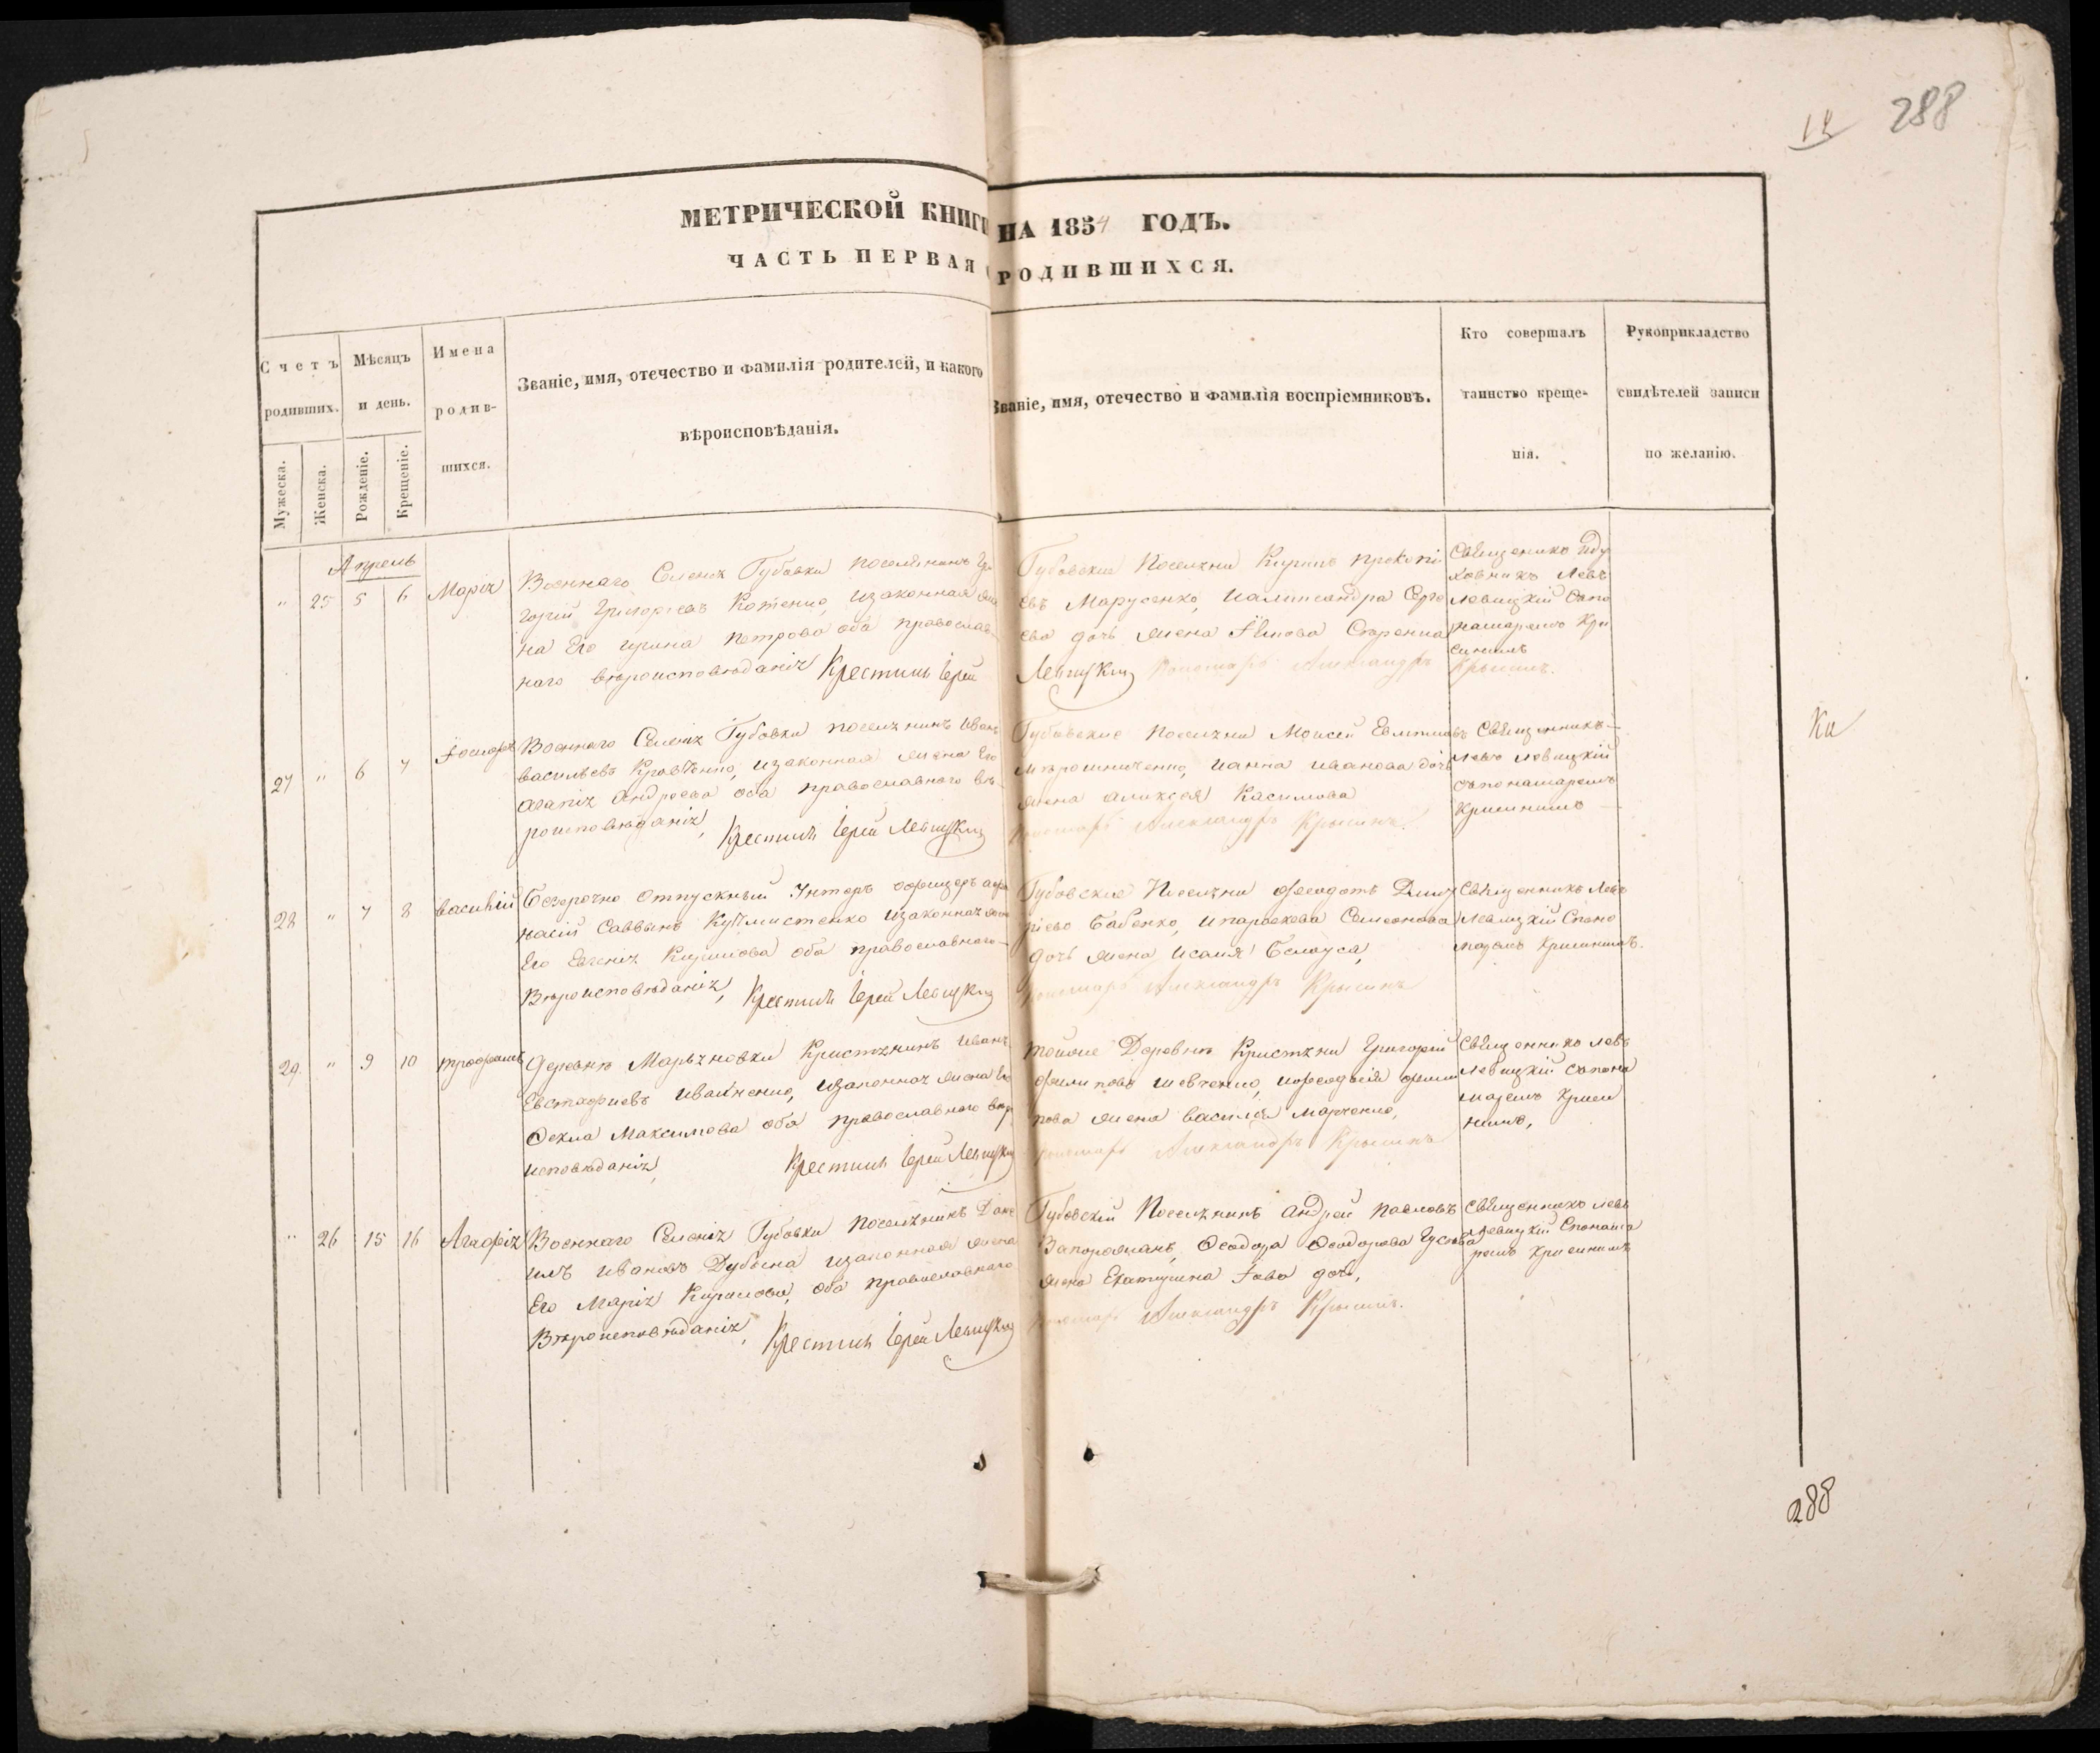 12 288
МЕТРИЧЕСКОЙ КНИГИ НА 1854 ГОДЪ.
ЧАСТЬ ПЕРВАЯ О РОДИВШИХСЯ.
Счетъ родивших.
Мужеска.
Женска.
Мѣсяцъ и день.
Рожденіе.
Крещеніе.
Имена родившихся.
Званіе, имя, отечество и фамилія родителей, и какого
вѣроисповѣданія.
Званіе, имя, отечество и фамилія воспріемниковъ.
Кто совершалъ
таинство креще-
нія.
Рукоприкладство
свидѣтелей записи
по желанію.
Апрель
" 25 5 6 Марія
Военнаго Селенія Губовки поселянинъ Гри
горій Григорьевъ изаконная жѐ
на Его Ирина Петрова оба православ
наго вѣроисповѣданія Крестилъ Іерей
Губовскіе Поселяни Кирилъ Прокопі
евъ Марусенко, Иалександра Серге
ева дочь жена
Левицкій Пономарь Александръ Крысинъ.
Священикъ Иду
ховникъ Левъ
Левицкій Спо
намаремъ Кри
синимъ
27 " 6 7 Іосифъ
Военнаго Селенія Губовки поселянинъ Иванъ
Васильевъ Кравченко, изаконная жена Его
Агапія Андреева оба православного вѣ
роисповѣданія, Крестилъ Іерей Левицкій
Губовские Поселяни Моисей
Мѣрошниченко, Ианна Иванова дочь
жена Аликсея Касимова
Пономарь Александръ Крысинъ.
Священникъ
Левъ Левицкій
съпонамаремъ
Крисинимъ
Ки
28 " 7 8 Василій
Безсрочно Отпускный Унтеръ офицеръ Афа
насій Саввинъ изаконная жена
Его Евгенія Кирилова оба православного
Вѣроисповѣданія, Крестилъ Іерей Левицкій
Губовские Поселяни Феодотъ Дмит
ріевъ Бабенко, Ипараскева Семенова
дочь жена Исаия Белауса,
Пономарь Александръ Крысинъ
Священникъ Левъ
Левицкій Споно
маремъ Крисинимъ.
29 " 9 10 Трофимъ
Деревнѣ Марьяновки Кристянинъ Иванъ
Евстафиевъ Иващенко, Изаконная жена Его
Фекла Максимова оба православного вѣро
исповѣданія, Крестилъ Іерей Левицкій
Тойже Деревнѣ Кристяни Григорій
Филиповъ Шевченко, Ифеодосія Фили
пова жена Василія Марченко,
Пономарь Александръ Крысинъ
Священникъ Левъ
Левицкій съпоно
маремъ Криси
нимъ,
" 26 15 16 Агафія
Военнаго Селенія Губовки Поселянинъ Дани
илъ Ивановъ Дубѣна изаконная жена
Его Марія Кирилова, оба православнаго
Вѣроисповѣданія, Крестилъ Іерей Левицкій
Губовскій Поселянинъ Андрей Павловъ
Запорожанъ, Феодора Феодорова
жена Екатерина дочь,
Пономарь Александръ Крысинъ.
Священникъ Левъ
Левицкій Спонома
ремъ Крисинимъ
288